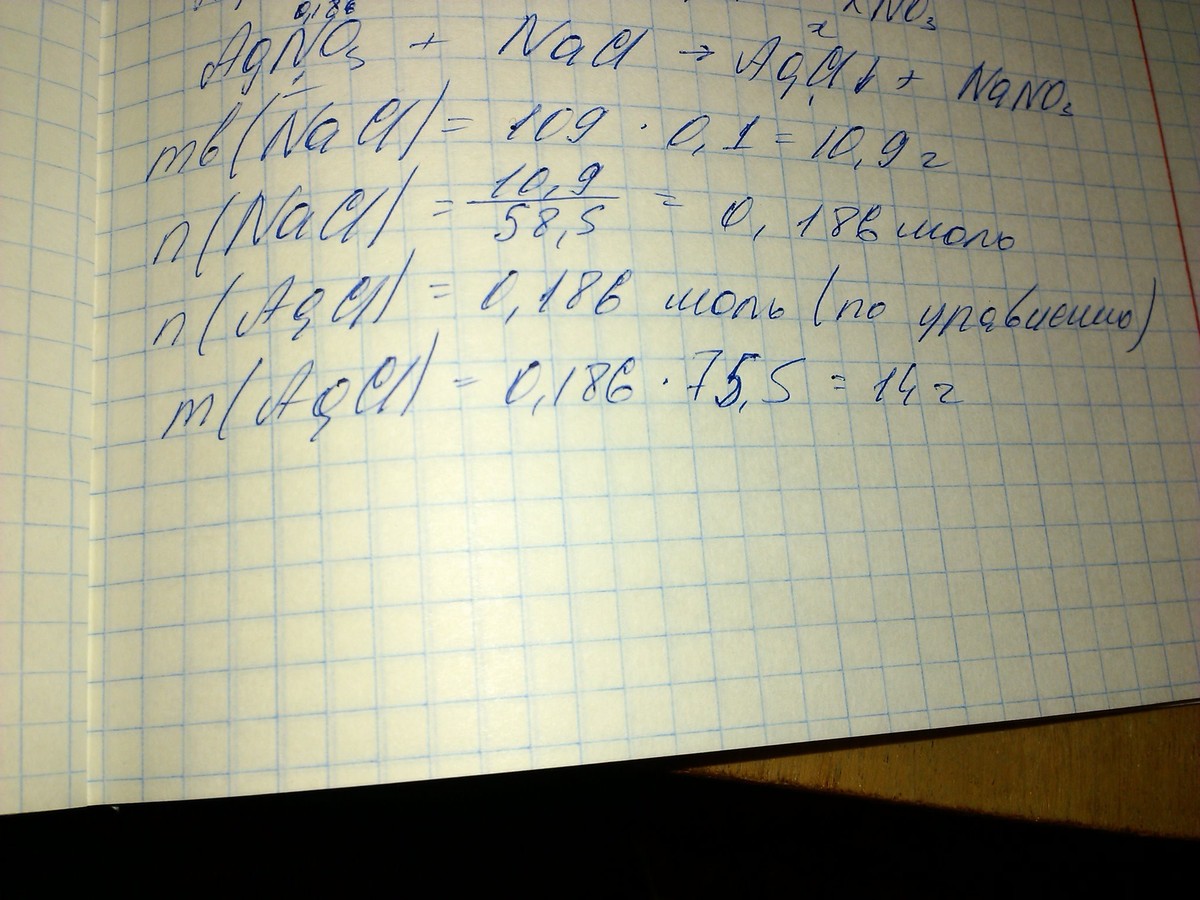 KNO₃
0,186 x
AgNO₃ + NaCl → AgCl↓ + NaNO₃
1 1
mв(NaCl) = 109 · 0,1 = 10,9 г
n(NaCl) = 10,9/58,5 = 0,186 моль
n(AgCl) = 0,186 моль (по уравнению)
m(AgCl) = 0,186 · 75,5 = 14 г